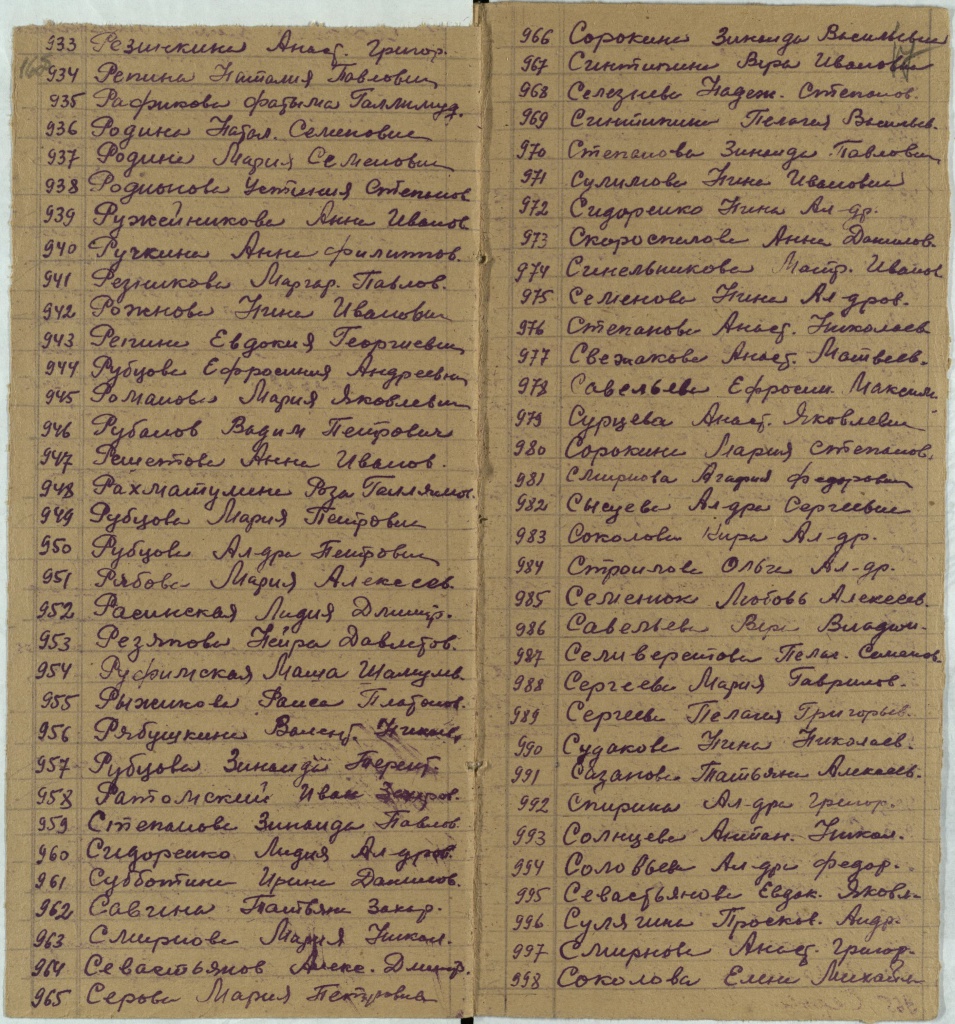 933 Резинкина Анаст. Григор.
934 Репина Наталия Павловна
935 Рафикова Фатыма Галлимуд.
936 Родина Натал. Семеновна
937 Родина Мария Семеновна
938 Родионова Устиния Степанов
939 Ружейникова Анна Иванов
940 Ручкина Анна Филиппов.
941 Резникова Маргар. Павлов.
942 Рожнова Нина Ивановна
943 Репина Евдокия Георгиевна
944 Рубцова Ефросиния Андреевна
945 Романова Мария Яковлевна
946 Рубанов Вадим Петрович
947 Решетова Анна Иванов.
948 Рахматулина Роза
949 Рубцова Мария Петровна
950 Рубцова Ал-дра Петровна
951 Рябова Мария Алексеев.
952 Расинская Лидия Дмитр.
953 Резяпова Нейра Давлетов.
954 Руфимская Маша
955 Рыжикова Раиса Платонов.
956 Рябушкина Валент. Николаев
957 Рубцова Зинаида Терент.
958 Ратомский Иван Захаров.
959 Степанова Зинаида Павлов
960 Сидоренко Лидия Ал-дров.
961 Субботина Ирина Данилов.
962 Савгина Татьяна Захар.
963 Смирнова Мария Никол.
964 Севастьянов Алекс. Дмитр.
965 Серова Мария Петровна
966 Сорокина Зинаида Васильевна
967 Синтипина Вера Ивановна
17
968 Селезнева Надеж. Степанов.
969 Синтипина Пелагея Васильев.
970 Степанова Зинаида Павловна
971 Сулимова Нина Ивановна
972 Сидоренко Нина Ал-др.
973 Скороспелова Анна Данилов.
974 Синельникова Матр. Иванов
975 Семенова Нина Ал-дров.
976 Степанова Анаст. Николаев
977 Свежакова Анаст. Матвеев.
978 Савельева Ефросин. Максим
979 Сурцева Анаст. Яковлевна
980 Сорокина Мария Степанов.
981 Смирнова Агафия Федоровна
982 Сысуева Ал-дра Сергеевна
983 Соколова Кира Ал-др.
984 Строилова Ольга Ал-др.
985 Семенюк Любовь Алексеев.
986 Савельева Вера Владим.
987 Селиверстова Пелаг. Семенов.
988 Сергеева Мария Гаврилов.
989 Сергеева Пелагея Григорьев.
990 Судакова Нина Николаев.
991 Сазанова Татьяна Алексеев.
992 Спирина Ал-дра Григор.
993 Солнцева Антон. Никол.
994 Соловьева Ал-дра Федор.
995 Севастьянова Евдок. Яковл.
996 Сулягина Просков. Андр.
997 Смирнова Анаст. Григор.
998 Соколова Елена Михайл